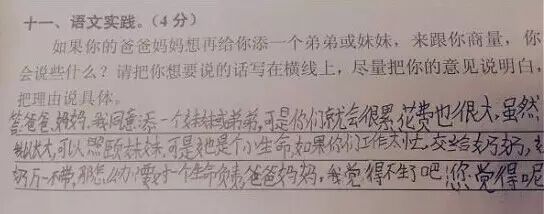 十一、语文实践。(4分)
如果你的爸爸妈妈想再给你添一个弟弟或妹妹，来跟你商量，你
会说些什么？请把你想要说的话写在横线上，尽量把你的意见说明白，
把理由说具体。
答:爸爸、妈妈,我同意添一个妹妹或弟弟,可是你们就会很累,花费也很大,虽然
我以大,可以照顾妹妹,可是她是个小生命,如果你们工作太忙,交给奶奶,
奶万一不带,那怎么办?要对一个生命负责,爸爸妈妈,我觉得不生了吧!您觉得呢